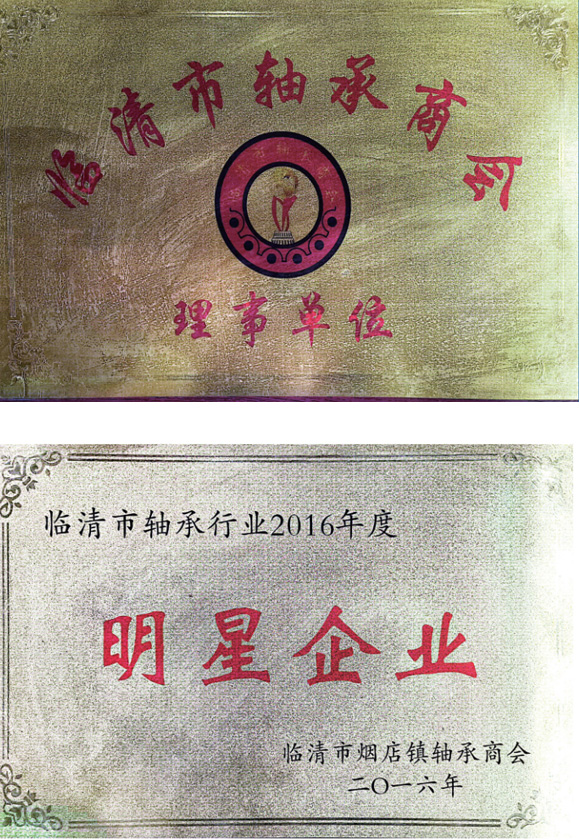 临清市轴承商会
理事单位
临清市轴承行业2016年度
明星企业
临清市烟店镇轴承商会
二〇一六年